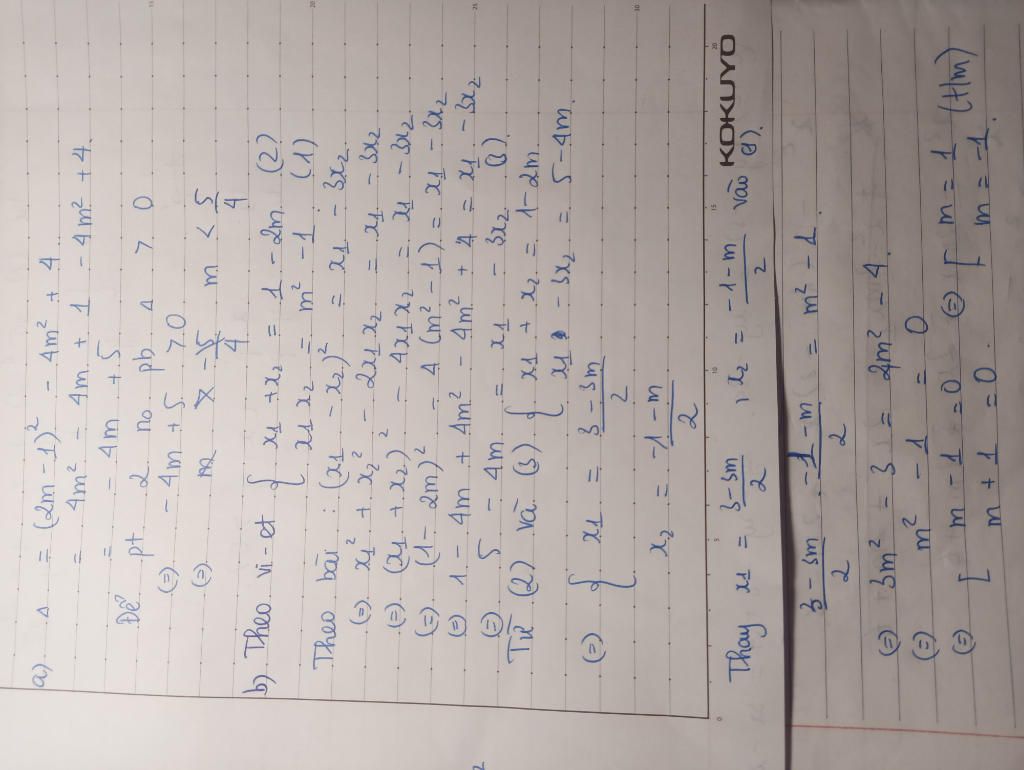 a) Δ = (2m - 1)² - 4m² + 4
= 4m² - 4m + 1 - 4m² + 4.
= - 4m + 5
Để pt 2 no pb Δ > 0
(=) - 4m + 5 > 0
(=) m < 5/4
b) Theo vi-et { x1 + x2 = 1 - 2m (2)
x1 x2 = m² - 1 (1)
Theo bài : (x1 - x2)² = x1 - 3x2
(=) x1² + x2² - 2x1x2 = x1 - 3x2
(=) (x1 + x2)² - 4x1x2 = x1 - 3x2
(=) (1 - 2m)² - 4(m² - 1) = x1 - 3x2
(=) 1 - 4m + 4m² - 4m² + 4 = x1 - 3x2
(=) 5 - 4m = x1 - 3x2 (3).
Từ (2) và (3) { x1 + x2 = 1 - 2m
x1 - 3x2 = 5 - 4m
(=) { x1 = 3 - 3m/2
x2 = -1 - m/2
KOKUYO
Thay x1 = 3 - 3m/2 , x2 = -1 - m/2 vào (1).
3 - 3m/2 . -1 - m/2 = m² - 1.
(=) 3m² - 3 = 4m² - 4.
(=) m² - 1 = 0
(=) [ m - 1 = 0 (=) [ m = 1 (t/m)
m + 1 = 0 . m = -1 .